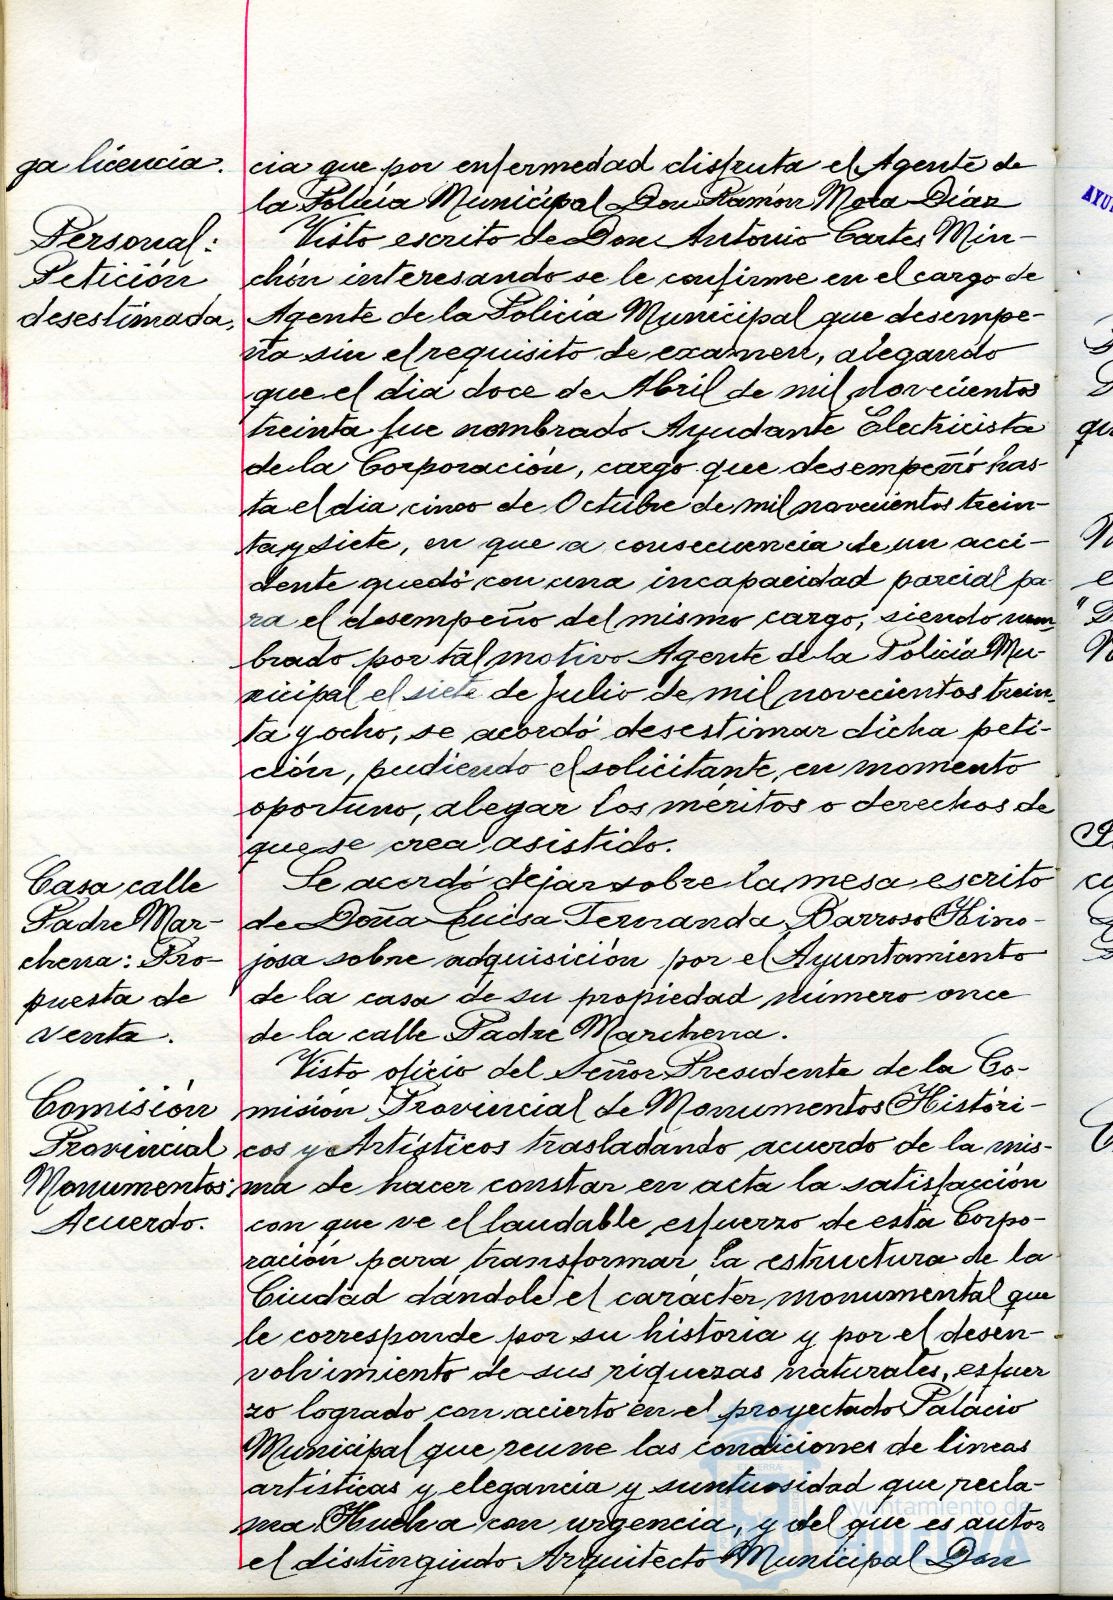 ga licencia.
cia que por enfermedad disfruta el Agente de
la Policia Municipal Don Ramón Mora Díaz
Personal:
Petición
desestimada.
Visto escrito de Don Antonio Cartes Min-
chón interesando se le confirme en el cargo de
Agente de la Policia Municipal que desempe-
ña sin el requisito de examen, alegando
que el dia doce de Abril de mil novecientos
treinta fue nombrado Ayudante Electricista
de la Corporación, cargo que desempeñó has-
ta el dia cinco de Octubre de mil novecientos trein-
ta y siete, en que a consecuencia de un acci-
dente quedó con una incapacidad parcial pa-
ra el desempeño del mismo cargo, siendo nom
brado por tal motivo Agente de la Policia Mu-
nicipal el siete de Julio de mil novecientos trein
ta y ocho, se acordó desestimar dicha peti-
ción, pudiendo el solicitante, en momento
oportuno, alegar los méritos o derechos de
que se crea asistido.
Casa calle
Padre Mar-
chena: Pro-
puesta de
venta.
Se acordó dejar sobre la mesa escrito
de Doña Luisa Fernanda Barroso Hino-
josa sobre adquisición por el Ayuntamiento
de la casa de su propiedad número once
de la calle Padre Marchena.
Comisión
Provincial
Monumentos:
Acuerdo.
Visto oficio del Señor Presidente de la Co-
misión Provincial de Monumentos Históri-
cos y Artísticos trasladando acuerdo de la mis-
ma de hacer constar en acta la satisfacción
con que ve el laudable esfuerzo de esta Corpo-
ración para transformar la estructura de la
Ciudad dándole el caracter monumental que
le corresponde por su historia y por el desen-
volvimiento de sus riquezas naturales, esfuer
zo logrado con acierto en el proyectado Palacio
Municipal que reune las condiciones de lineas
artísticas y elegancia y suntuosidad que recla-
ma Huelva con urgencia, y del que es autor
el distinguido Arquitecto Municipal Don
Ayuntamiento de
HUELVA